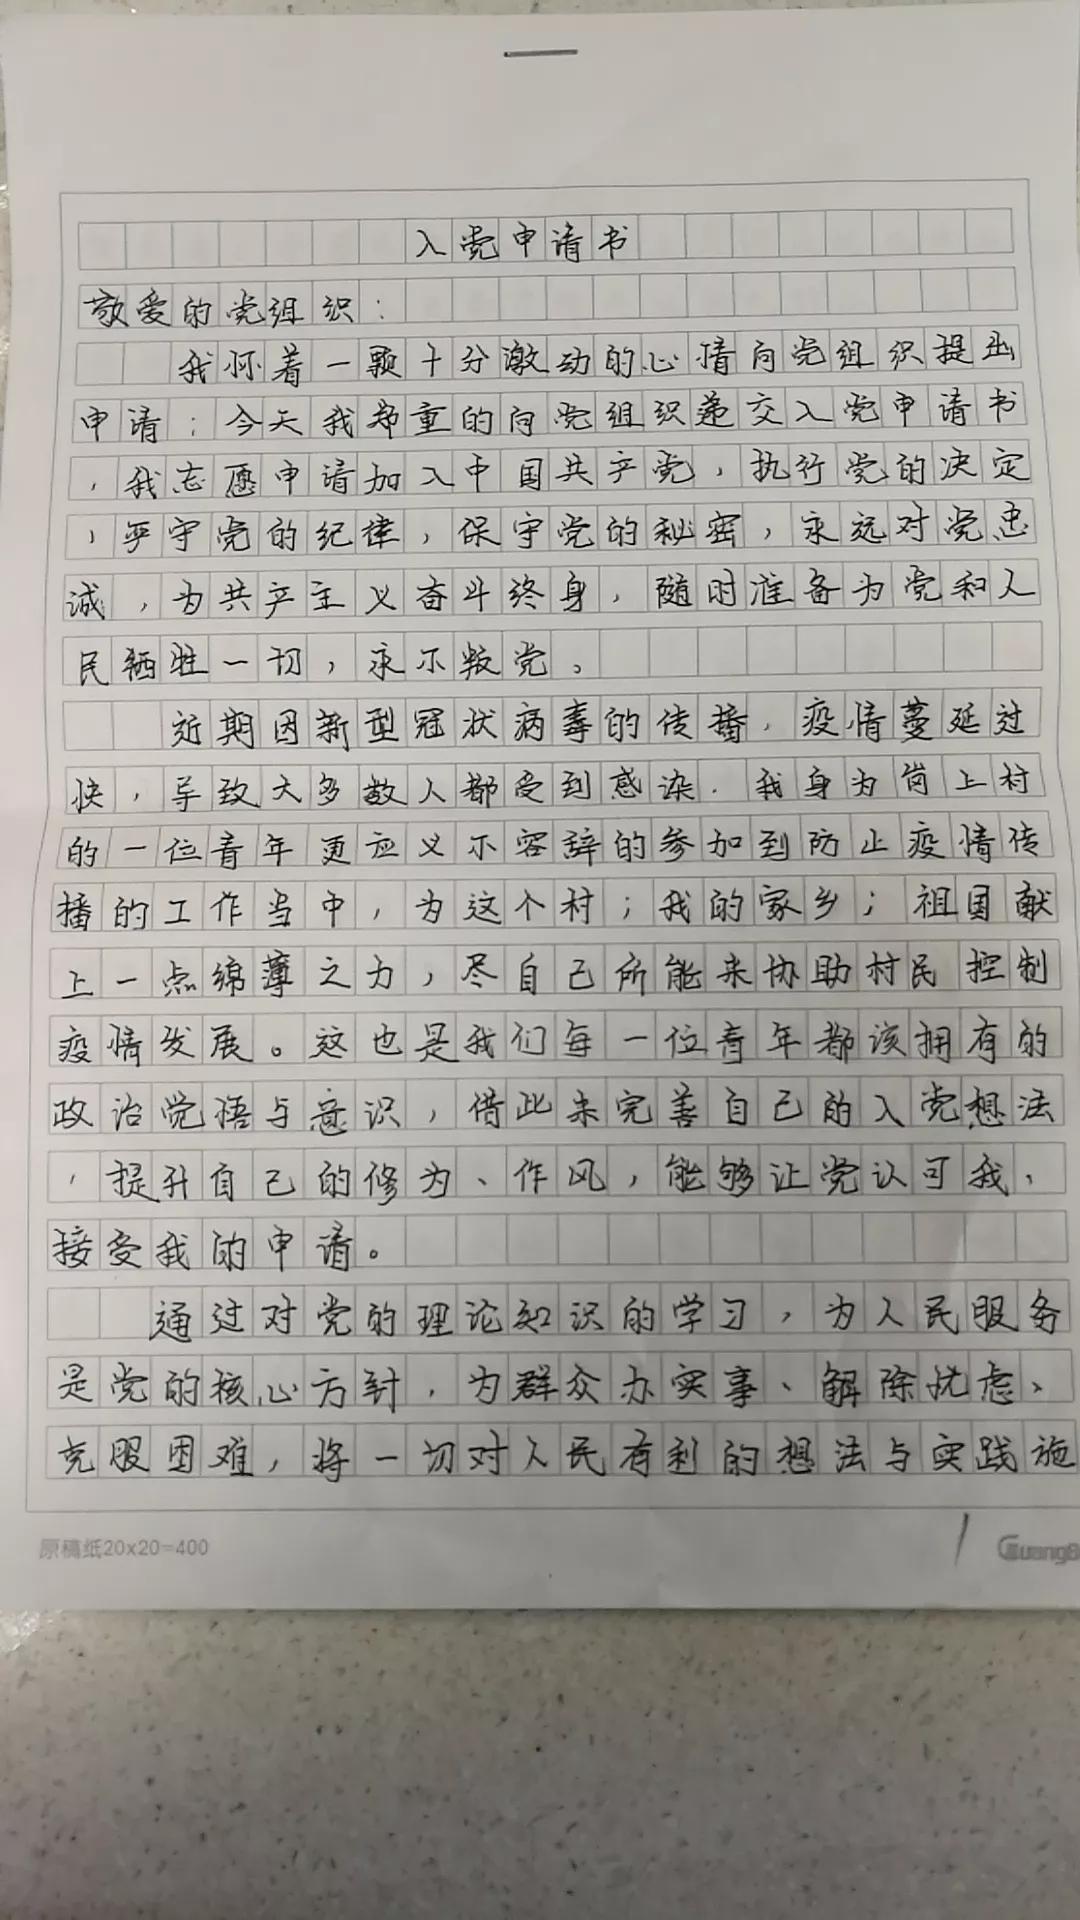 入党申请书
敬爱的党组织：
我怀着一颗十分激动的心情向党组织提出
申请：今天我郑重的向党组织递交入党申请书
，我志愿申请加入中国共产党，执行党的决定
，严守党的纪律，保守党的秘密，永远对党忠
诚，为共产主义奋斗终身，随时准备为党和人
民牺牲一切，永不叛党。
近期因新型冠状病毒的传播，疫情蔓延过
快，导致大多数人都受到感染．我身为岗上村
的一位青年更应义不容辞的参加到防止疫情传
播的工作当中，为这个村；我的家乡；祖国献
上一点绵薄之力，尽自己所能来协助村民控制
疫情发展。这也是我们每一位青年都该拥有的
政治觉悟与意识，借此来完善自己的入党想法
，提升自己的修为、作风，能够让党认可我，
接受我的申请。
通过对党的理论知识的学习，为人民服务
是党的核心方针，为群众办实事、解除忧虑、
克服困难，将一切对人民有利的想法与实践施
原稿纸20x20=400
1
GuangB